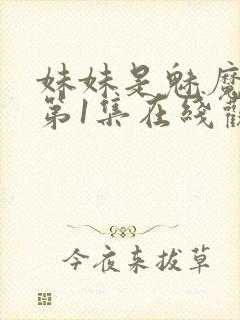 妹妹是魅魔
第1集在綫觀
今夜来拔草